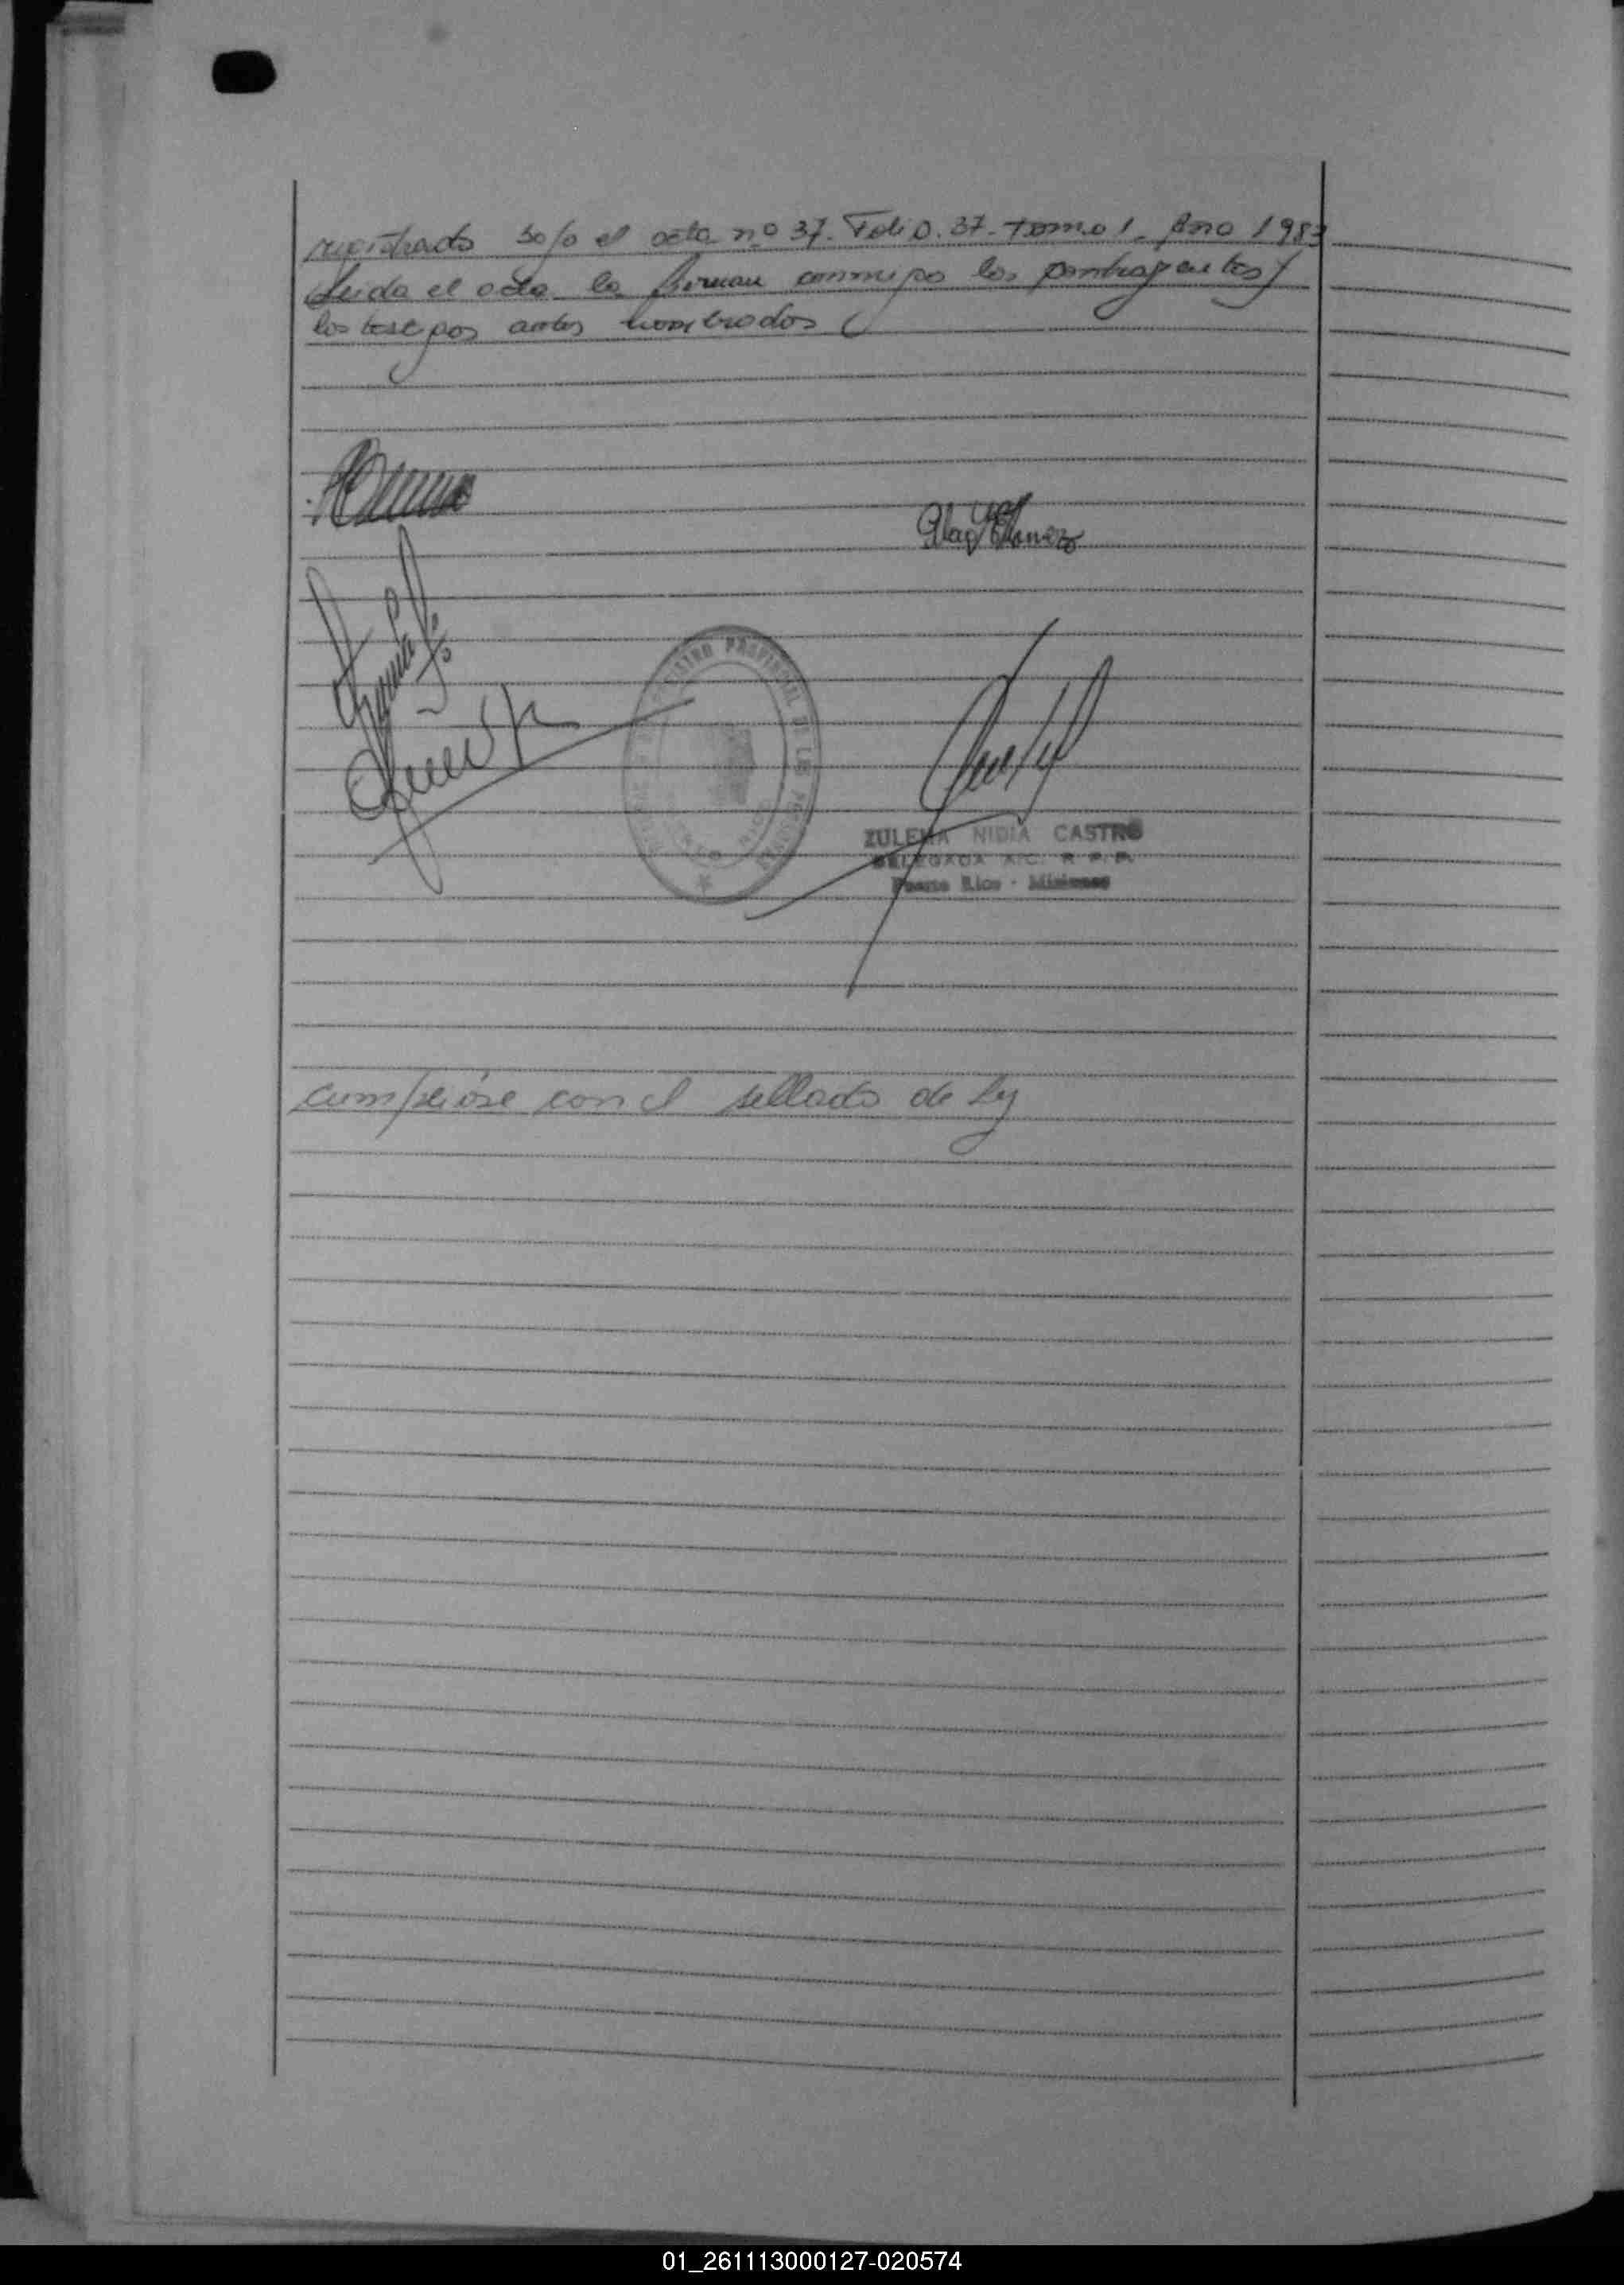 registrado bajo el acta nº 37. Folio. 37. tomo 1. Año 1983
Leida el acta la firman conmigo los contrayentes y
los testigos antes nombrados
REGISTRO PROVINCIAL DE LAS PERSONAS
ZULEMA NIDIA CASTRO
DELEGADA R. P. P.
Puerto Rico - Misiones
cumpliose con el sellado de Ley
01_261113000127-020574